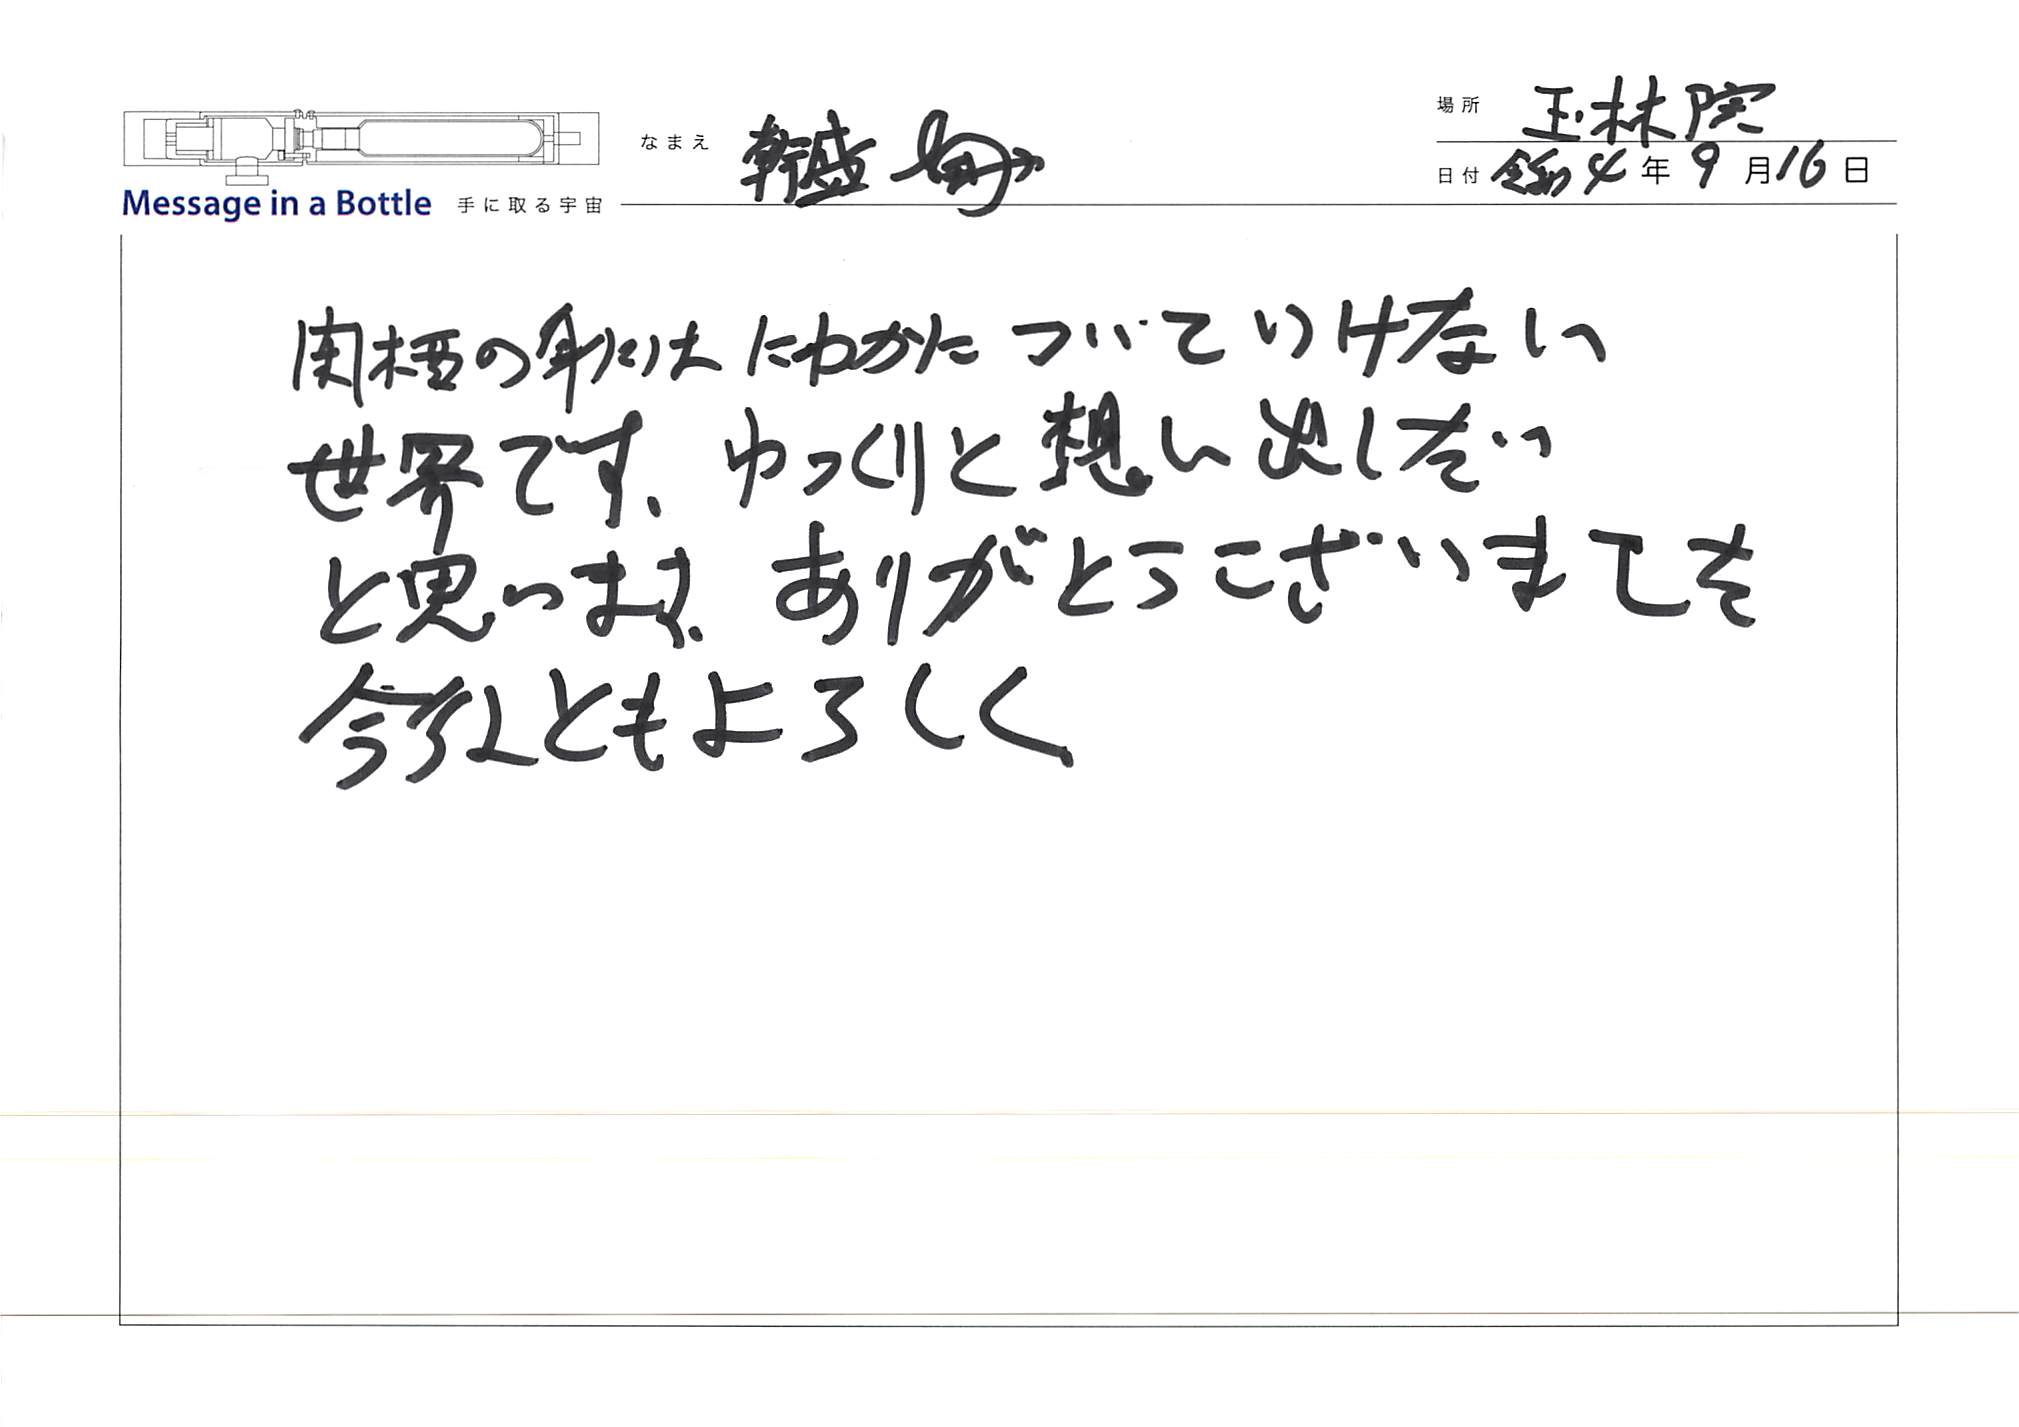 場所 玉林院
なまえ 幹盛
日付 令和4年9月16日
Message in a Bottle 手に取る宇宙
関栖の私には にわかに ついていけない
世界です、ゆっくりと想い出したい
と思います、ありがとうございました
今後ともよろしく、